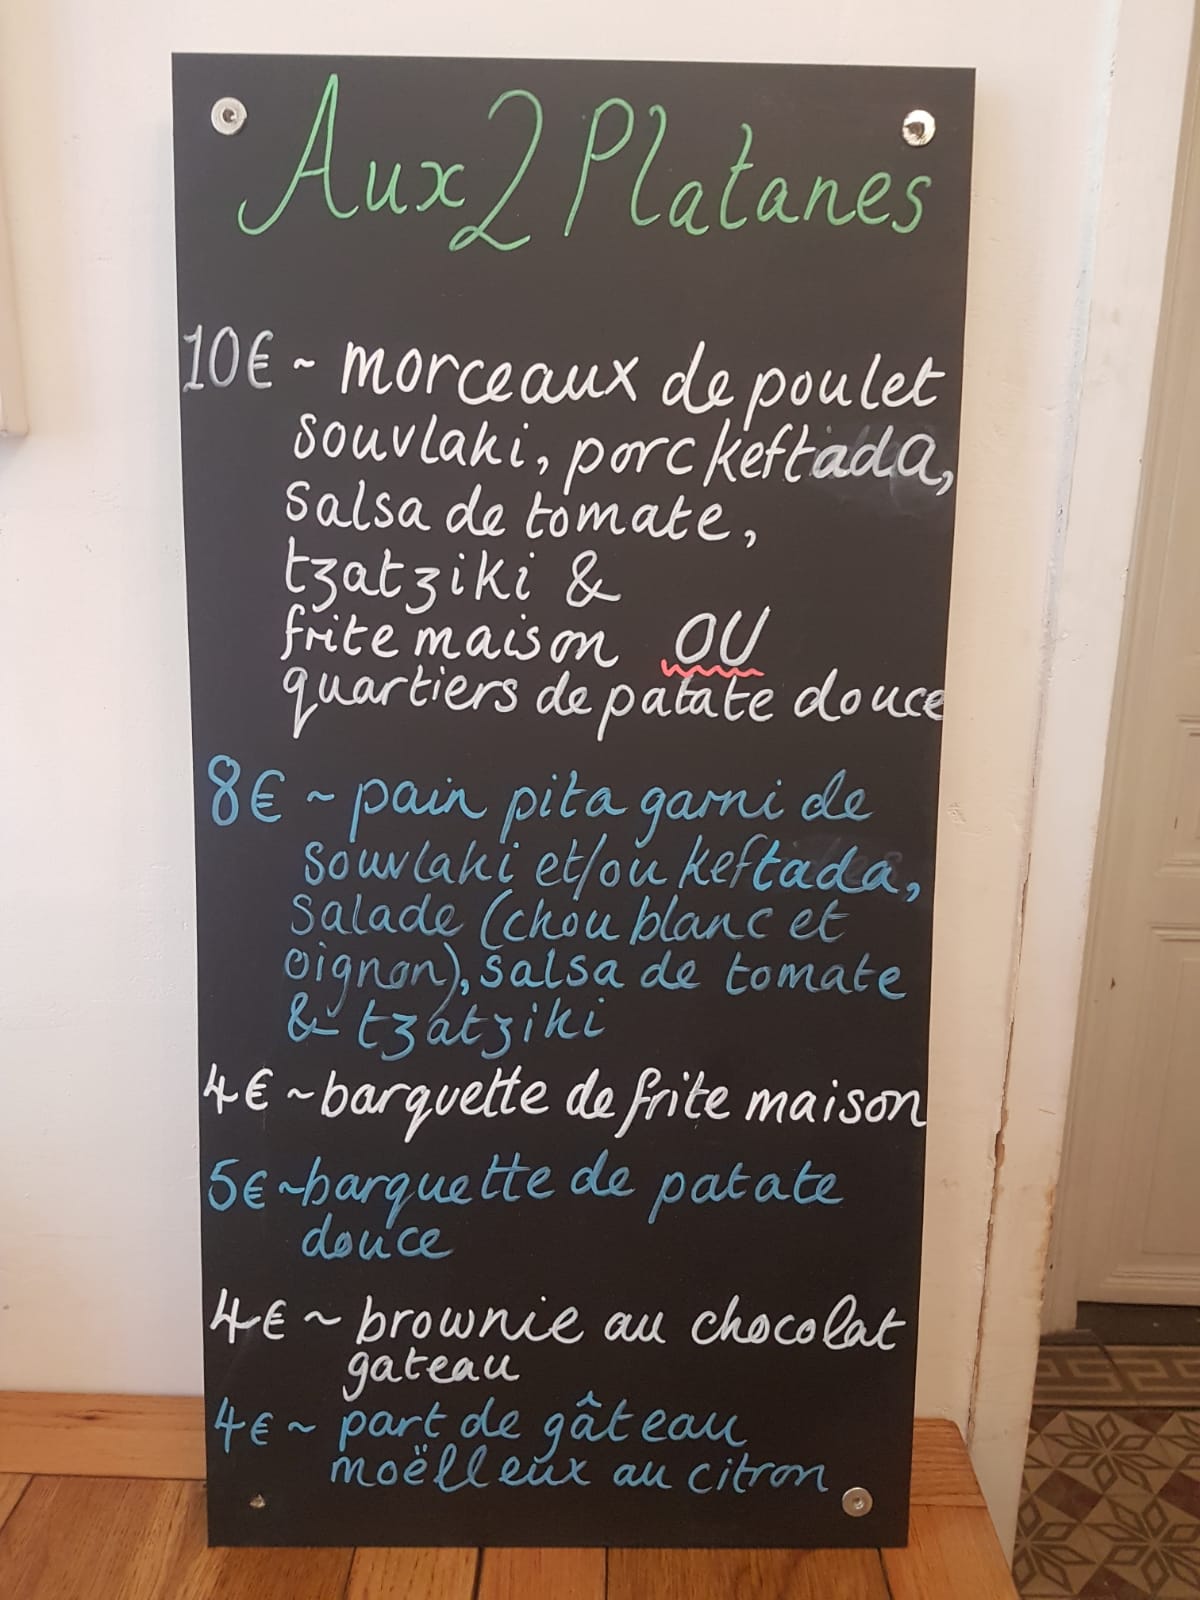 Aux 2 Platanes
10€ ~ morceaux de poulet
souvlaki, porc keftada,
salsa de tomate,
tzatziki &
frite maison OU
quartiers de patate douce
8€ ~ pain pita garni de
souvlaki et/ou keftada,
salade (chou blanc et
oignon), salsa de tomate
& tzatziki
4€ ~ barquette de frite maison
5€ ~ barquette de patate
douce
4€ ~ brownie au chocolat
gateau
4€ ~ part de gâteau
moëlleux au citron